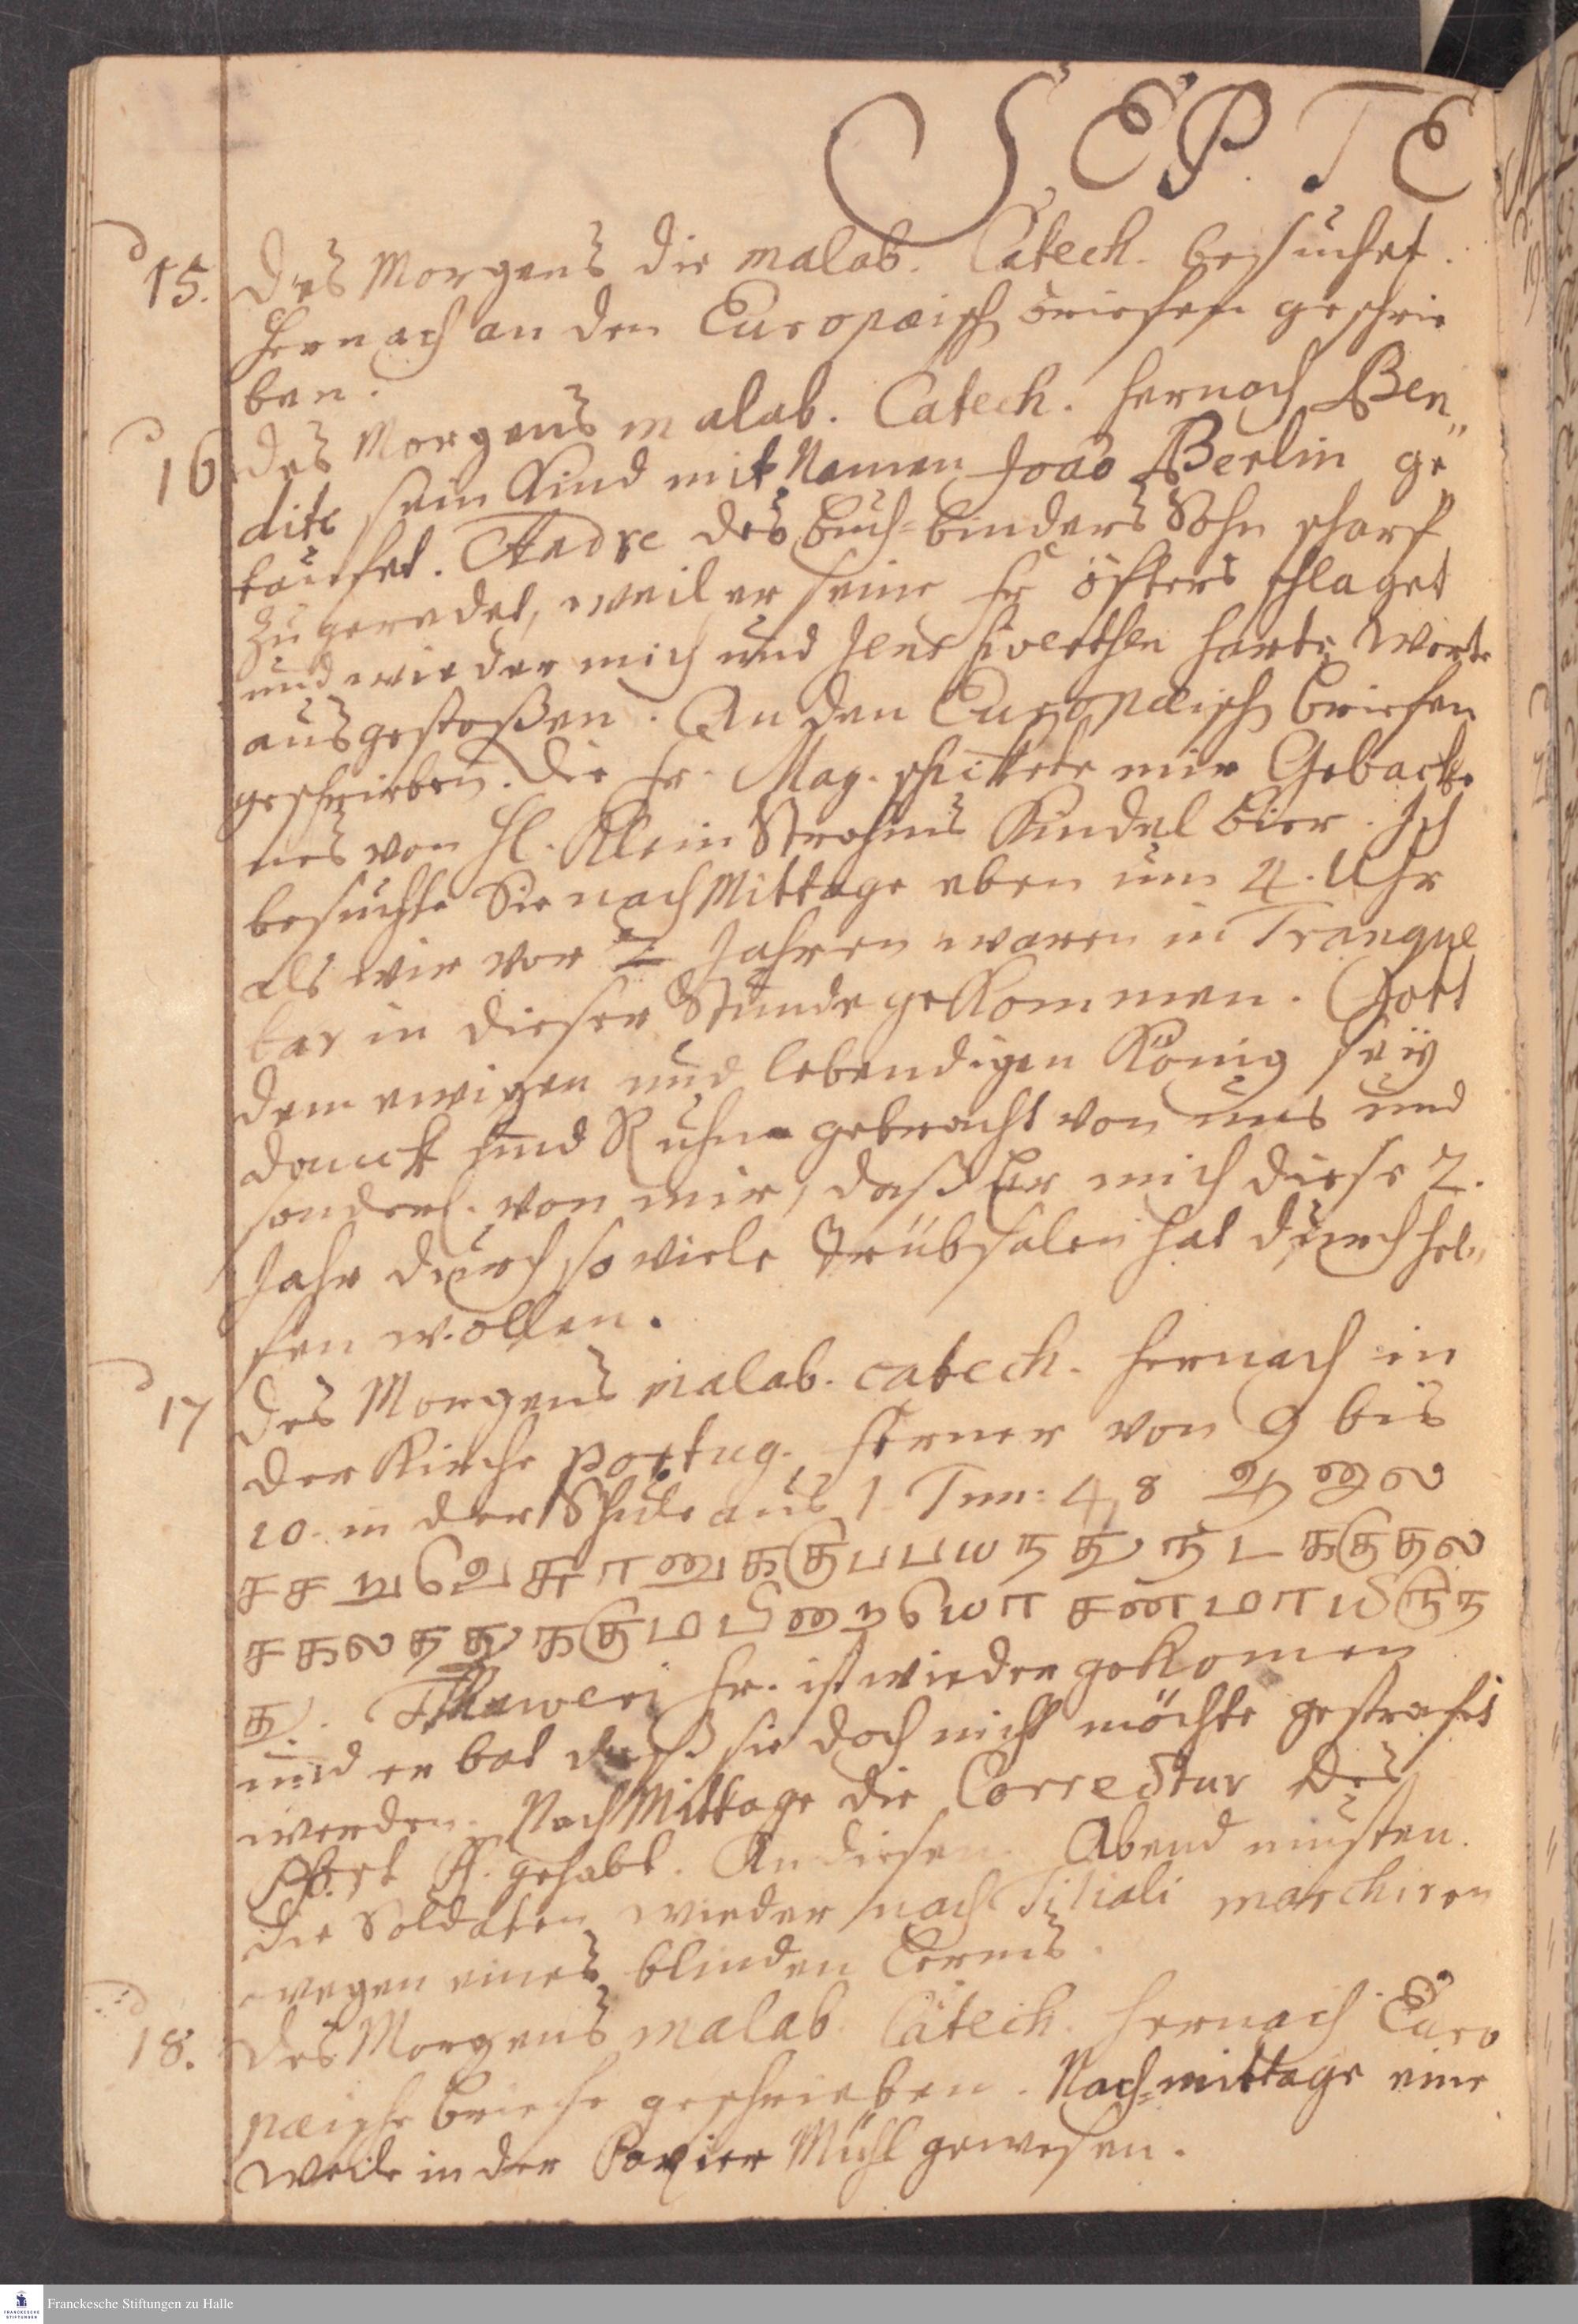 SEPTE
15. des Morgens die malab. Catech. besuchet.
Hernach an den Europæisch briefen geschrie
ben.
16 des Morgens malab. Catech. hernach Ben„
dite sein Kind mit Namen Joaõ Berlin ge
taufet. Andre des Buch-binders Sohn scharf
zugeredet, weil er seine fr öfters schlaget
und wieder mich und Jens harte Worte
ausgestoßen. An den Europæisch briefen
geschrieben. Die fr. Mag. schikkete mir Gebacke
nes von H. Klein Strohms Kindel bier. Ich
besuchte Sie nach Mittage eben um 4. Uhr
als wir vor 2 Jahren waren in Tranque
bar in dieser Stunde gekommen. Gott
dem ewigen und lebendigen König seÿ
danck und Ruhm gebracht von uns und
sonderl. von mir, daß Er mich diese 2.
Jahr durch so viele Trübsalen hat durch hel„
fen wollen.
17 des Morgens malab. catech. hernach in
der Kirche portug. ferner von 9 bis
10. in der Schule aus 1 Tim: 4, 8 ஆனல
சச றுவெசுரானுககுபபயநதுநடககுதல
சகலததுககுமபினறயொசனமாயிருந
து. fr. ist wieder gekomen
und er bat daß sie doch nicht möchte gestrafet
werden. Nach Mittage die Correctur des
gehabt. An diesen Abend musten
die Soldaten wieder nach Tiliali marchiren
wegen eines blinden Lerms.
18. des Morgens malab. Catech. hernach Euro
pæische briefe geschrieben. Nach-mittage eine
Weile in der Papier Mühl gewesen.
Franckesche Stiftungen zu Halle